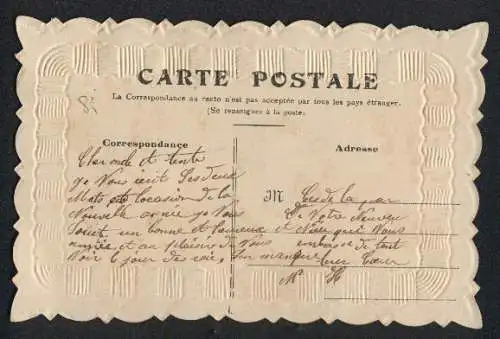 CARTE POSTALE
La Correspondance au recto n'est pas acceptée par tous les pays étranger.
(Se renseigner à la poste)
Correspondance
Cher oncle et tente
je Vous ecrit Ses deux
Mots a locasion de la
Nouvelle année je Vous
Souet un bonne et
année et au plaisir de Vous
Voir le jour des rois,
Adresse
M Ces de la par
De Votre Neveu
et Niece qui Vous
embrase De tout
leur Cœur
M